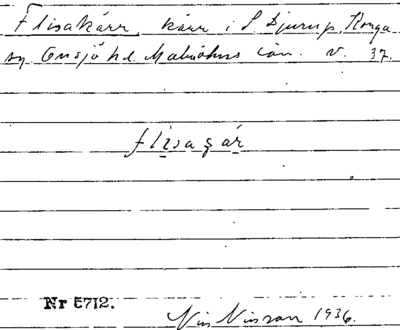 Flisakärr, kärr i S Djurup, Konga
sn Onsjö hd. Malmöhus län. v. 37.
flisagár
Nr 5712.
Nils Nilsson 1936.